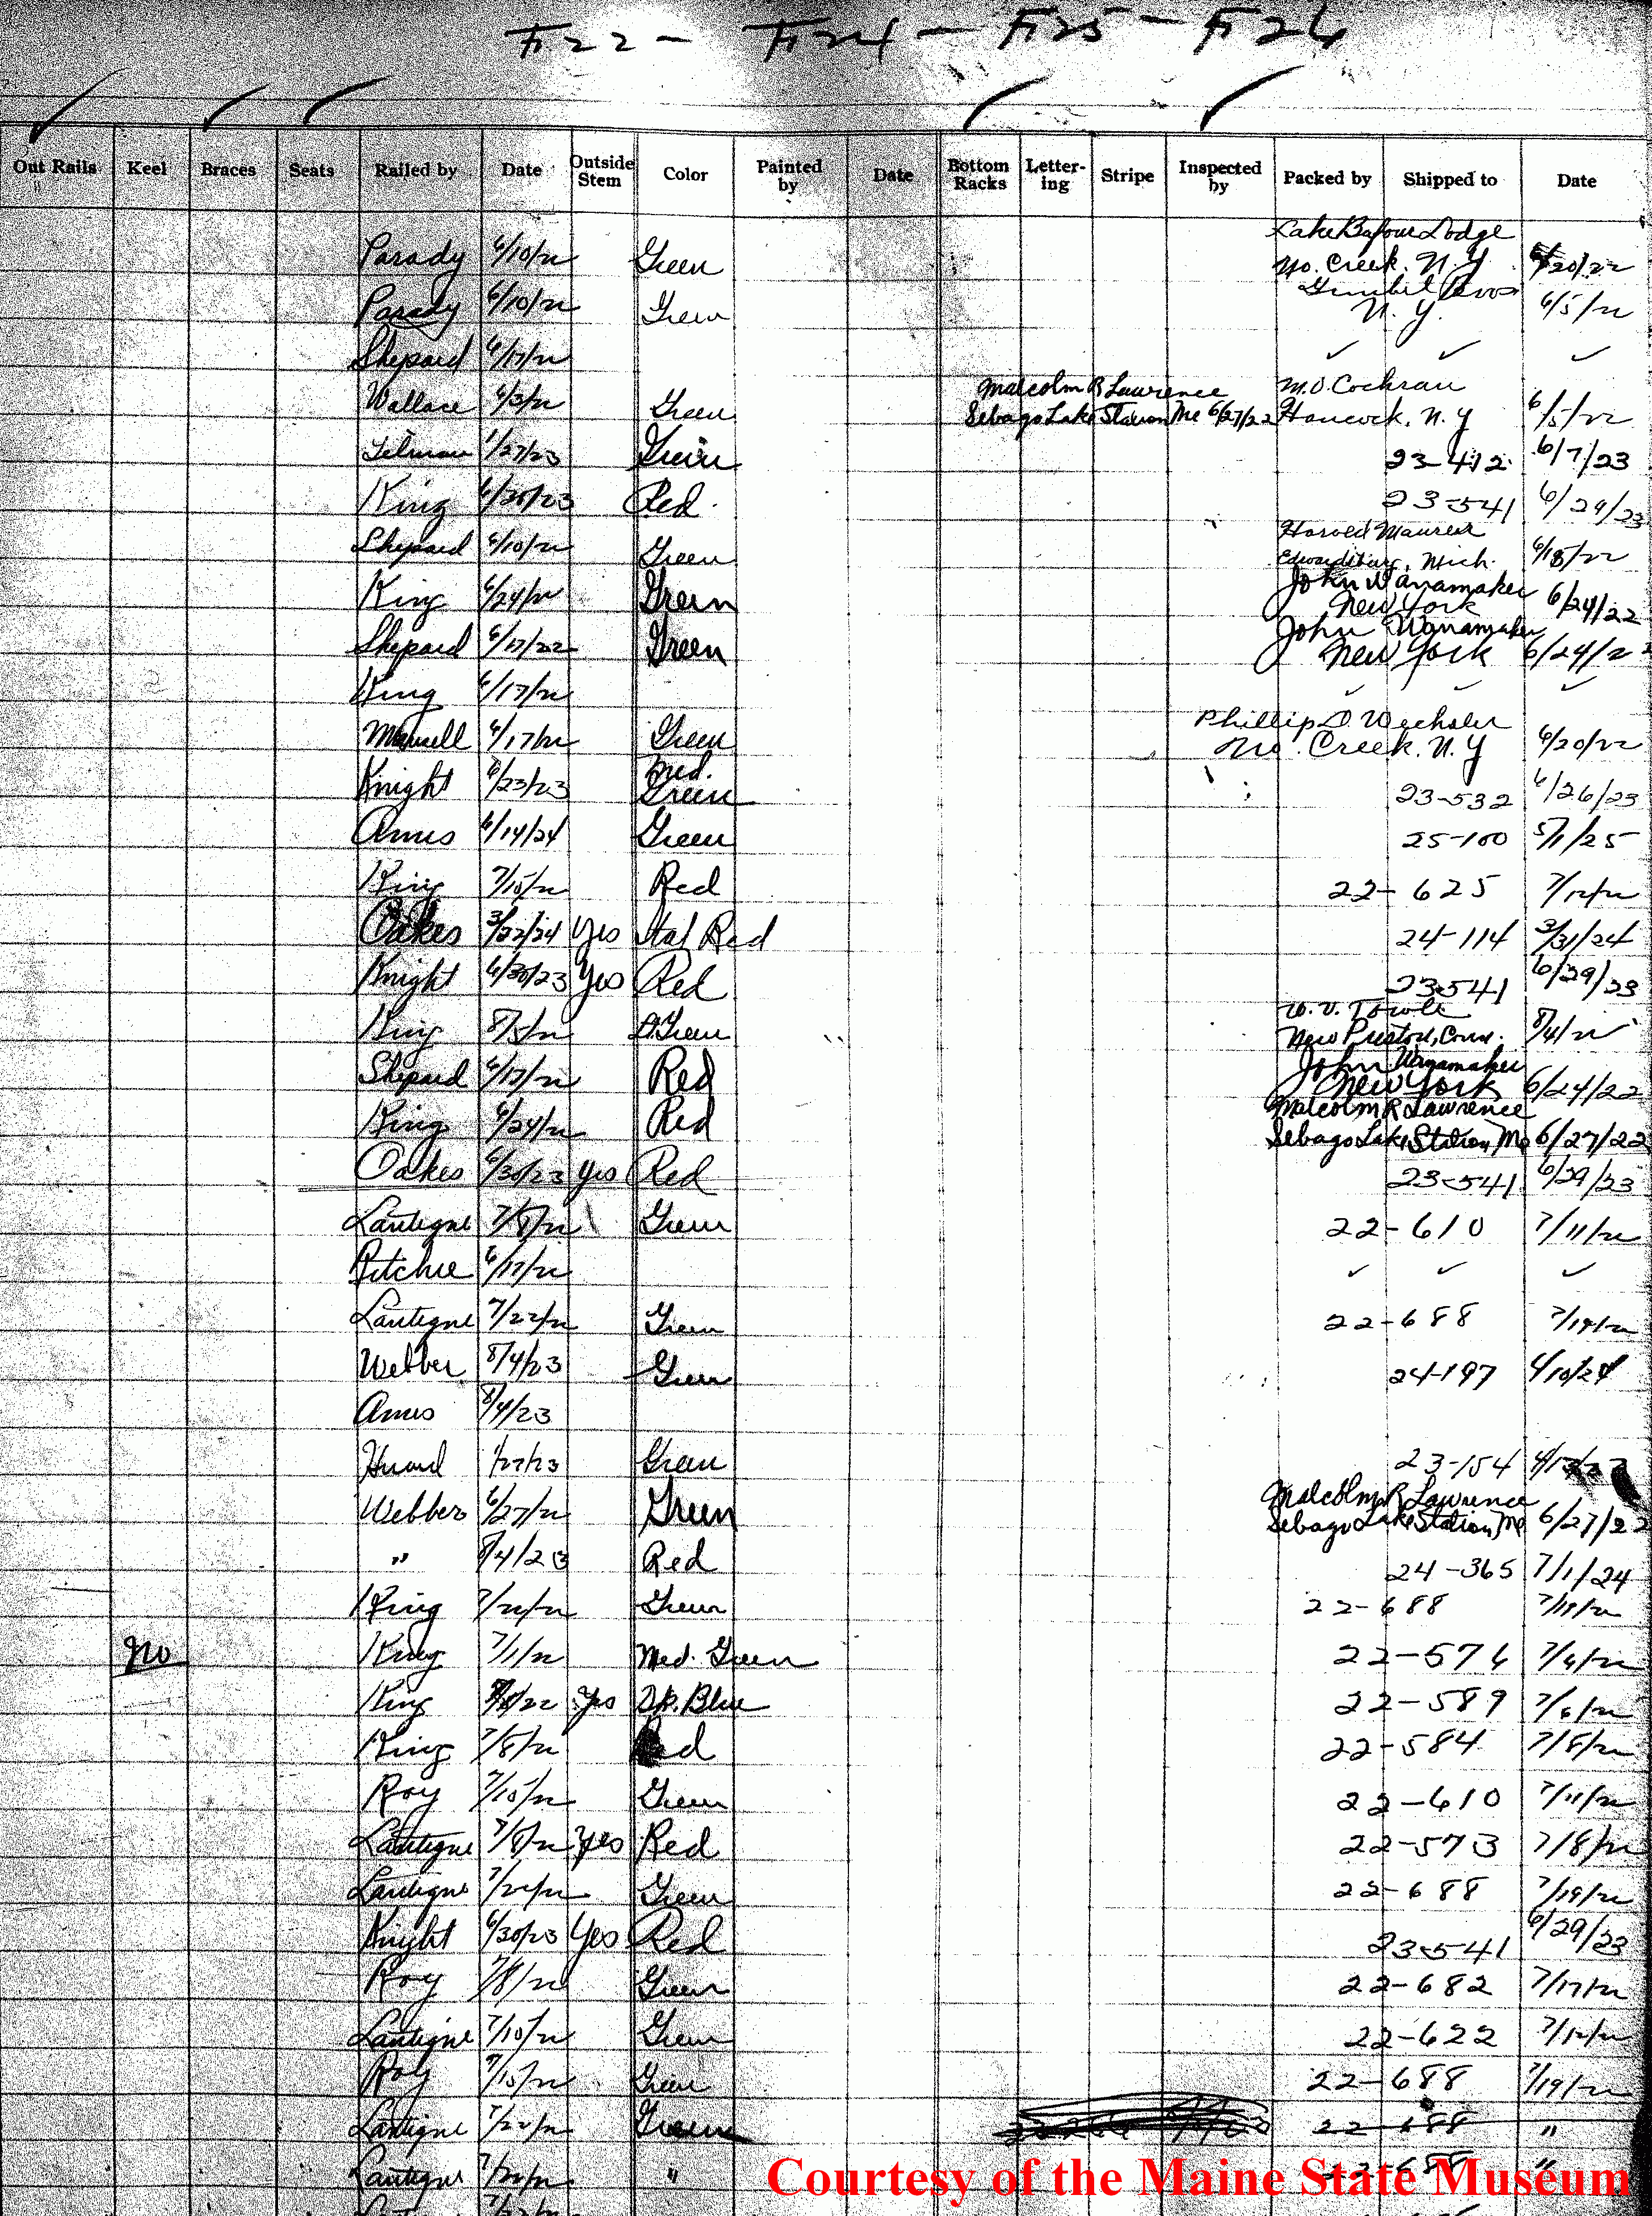 Fi 22 - Fi 24 - Fi 25 - Fi 26
Out Rails Keel Braces Seats Railed by Date Outside Stem Color Painted by Date Bottom Racks Letter-ing Stripe Inspected by Packed by Shipped to Date
"
Lake Bafour Lodge
Parady 6/10/22 Green No. Creek. N.Y. 6/20/22
Gimbel Bros
Parady 6/10/22 Green N.Y. 6/5/22
Shepard 6/17/22 ✓ ✓ ✓
Malcolm R Lawrence M.O. Cochran
Wallace 6/3/22 Green Sebago Lake Station Me 6/27/22 Hancock, N.Y 6/5/22
1/27/23 Green 23-412 6/7/23
King 6/20/23 Red 23-541 6/29/23
Harold Maurer
Shepard 6/10/22 Green Edwardsburg, Mich. 6/15/22
John Wanamaker
King 6/24/22 Green New York 6/24/22
John Wanamaker
Shepard 6/17/22 Green New York 6/24/22
King 6/17/22 ✓ ✓ ✓
Phillip D. Wechsler
6/17/22 Green No. Creek. N.Y 6/20/22
Med.
Knight 6/23/23 Green 23-532 6/26/23
Ames 6/14/24 Green 25-100 5/1/25
King 7/15/22 Red 22-625 7/12/22
Oakes 3/22/24 Yes Red 24-114 3/31/24
Knight 6/30/23 Yes Red 23-541 6/29/23
W.V. Towle
King 8/5/22 D. Green New Preston, Conn. 8/4/22
John Wanamaker
Shepard 6/17/22 Red New York 6/24/22
Malcolm R Lawrence
King 6/24/22 Red Sebago Lake Station, Me 6/27/22
Oakes 6/30/23 Yes Red 23-541 6/29/23
Lantigne 7/8/22 Green 22-610 7/11/22
Ritchie 6/17/22 ✓ ✓ ✓
Lantigne 7/22/22 Green 22-688 7/19/22
Webber 8/4/23 Green 24-197 4/10/24
Ames 8/4/23
Huard 1/27/23 Green 23-154
Malcolm R Lawrence
Webber 6/27/22 Green Sebago Lake Station, Me 6/27/22
" 8/4/23 Red 24-365 7/1/24
King 7/22/22 Green 22-688 7/19/22
No King 7/1/22 Med. Green 22-576 7/6/22
King 7/8/22 Yes Dk. Blue 22-589 7/6/22
King 7/8/22 Red 22-584 7/8/22
Roy 7/15/22 Green 22-610 7/11/22
Lantigne 7/8/22 Yes Red 22-573 7/8/22
Lantigne 7/22/22 Green 22-688 7/19/22
Knight 6/30/23 Yes Red 23-541 6/29/23
Roy 7/8/22 Green 22-682 7/17/22
Lantigne 7/10/22 Green 22-622 7/12/22
Roy 7/15/22 Green 22-688 7/19/22
Lantigne 7/22/22 Green 22-688 "
Lantigne 7/22/22 " 22-688 "
Courtesy of the Maine State Museum